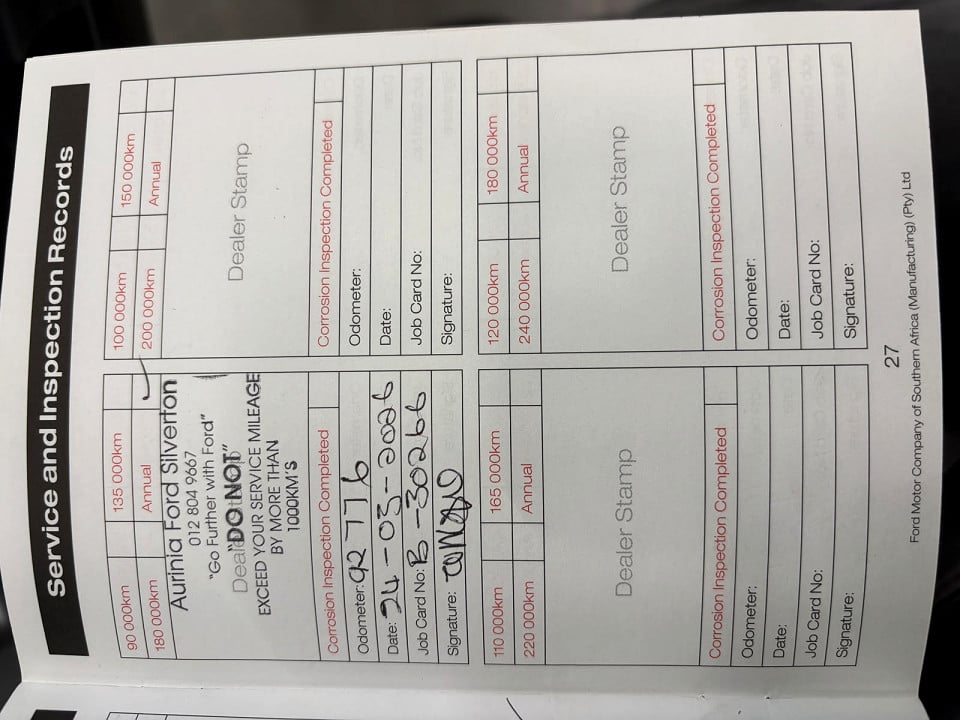 Service and Inspection Records
90 000km 135 000km
180 000km Annual
Aurinia Ford Silverton
012 804 9667
"Go Further with Ford"
Dealer Stamp
"DO NOT"
EXCEED YOUR SERVICE MILEAGE
BY MORE THAN
1000KM'S
Corrosion Inspection Completed
Odometer: 92 776
Date: 24-03-2026
Job Card No: B-30266
Signature:
100 000km 150 000km
200 000km Annual
Dealer Stamp
Corrosion Inspection Completed
Odometer:
Date:
Job Card No:
Signature:
110 000km 165 000km
220 000km Annual
Dealer Stamp
Corrosion Inspection Completed
Odometer:
Date:
Job Card No:
Signature:
120 000km 180 000km
240 000km Annual
Dealer Stamp
Corrosion Inspection Completed
Odometer:
Date:
Job Card No:
Signature:
27
Ford Motor Company of Southern Africa (Manufacturing) (Pty) Ltd